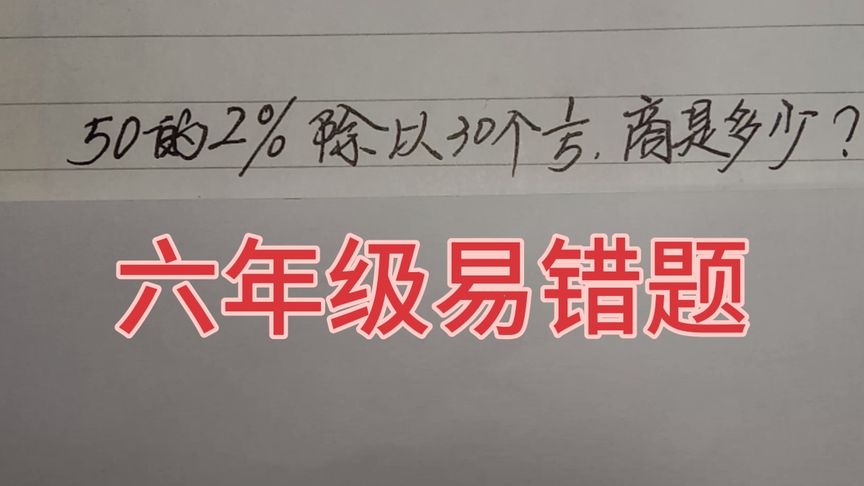 50的2%除以30个1/5,商是多少?
六年级易错题